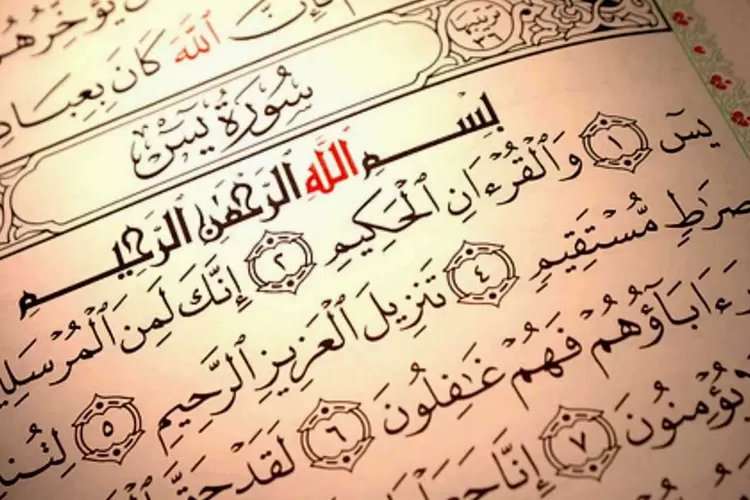 يُؤَخِّرُهُمْ
اللَّهَ كَانَ بِعِبَادِ
ترتيبها ٣٦
سُورَةُ يسٓ
بِسْمِ اللَّهِ الرَّحْمَٰنِ الرَّحِيمِ
يسٓ ١ وَالْقُرْءَانِ الْحَكِيمِ ٢ إِنَّكَ لَمِنَ الْمُرْسَلِي
صِرَٰطٍ مُّسْتَقِيمٍ ٤ تَنزِيلَ الْعَزِيزِ الرَّحِيمِ ٥ لِتُن
ءَابَآؤُهُمْ فَهُمْ غَٰفِلُونَ ٦ لَقَدْ حَقَّ
يُؤْمِنُونَ ٧ إِنَّا جَعَلْ